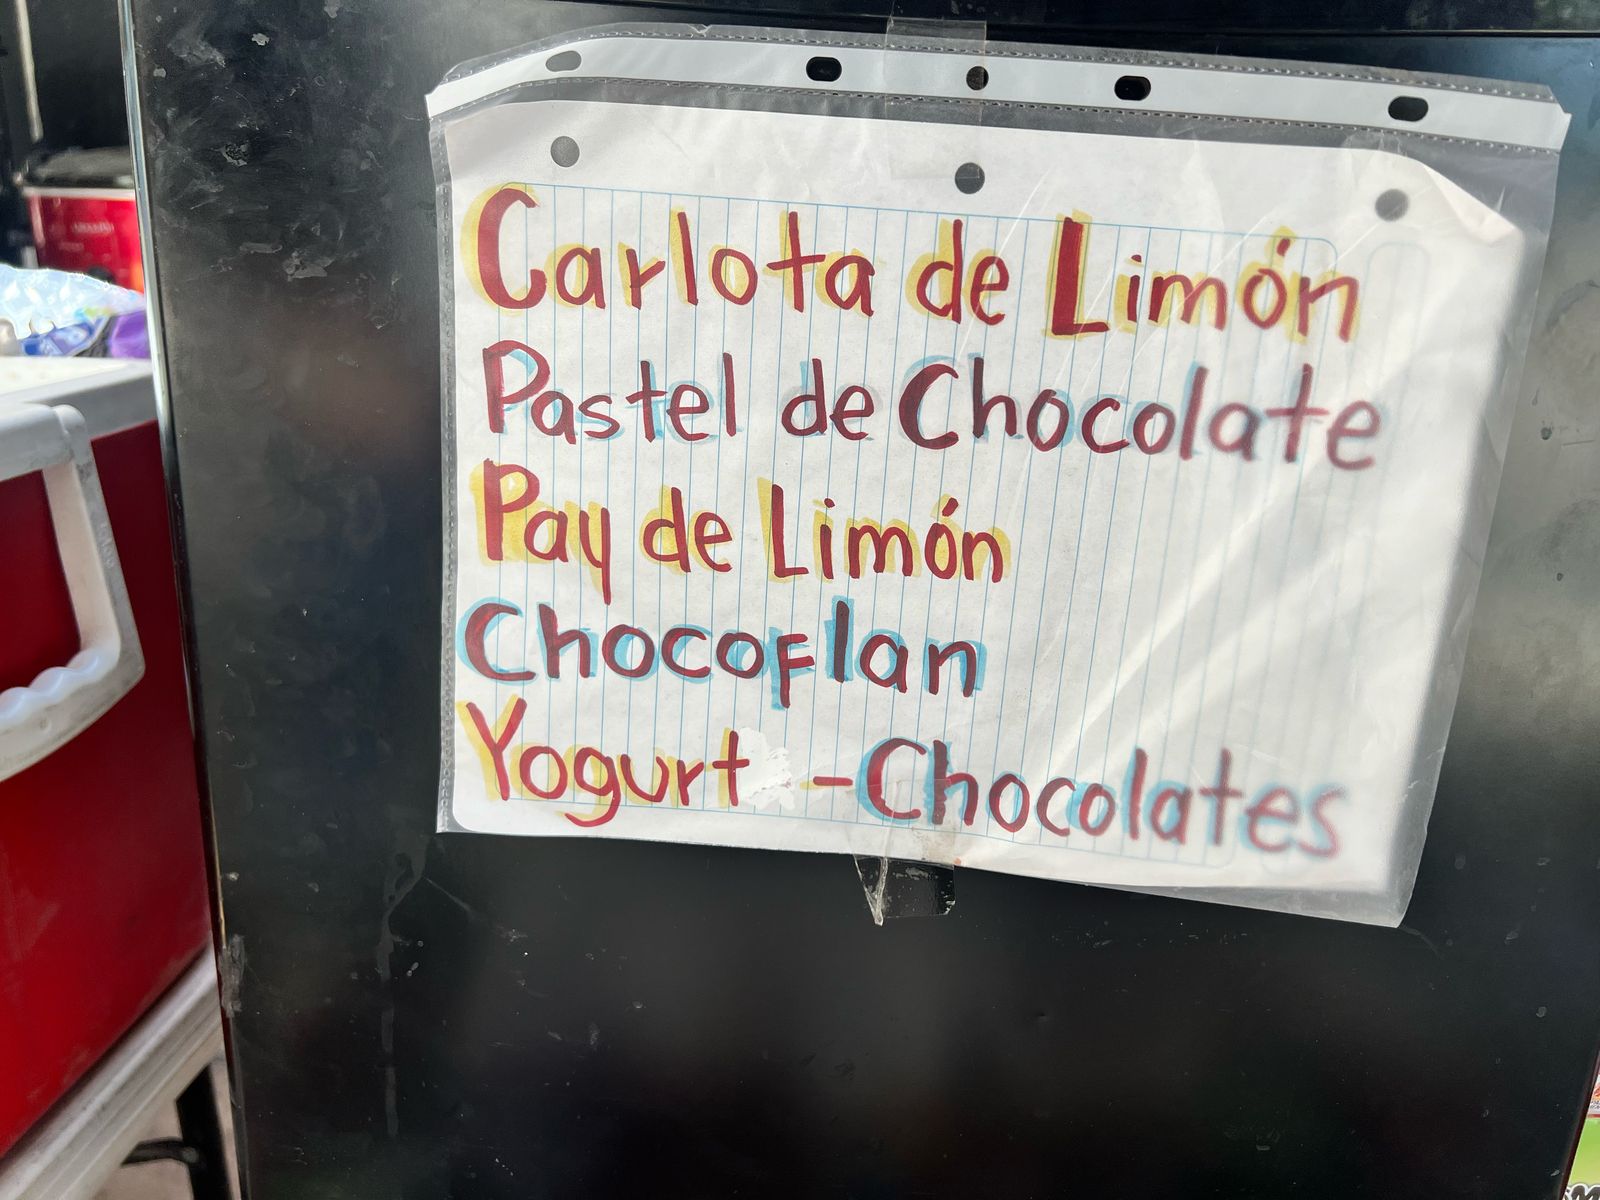 Carlota de Limón
Pastel de Chocolate
Pay de Limón
Chocoflan
Yogurt - Chocolates